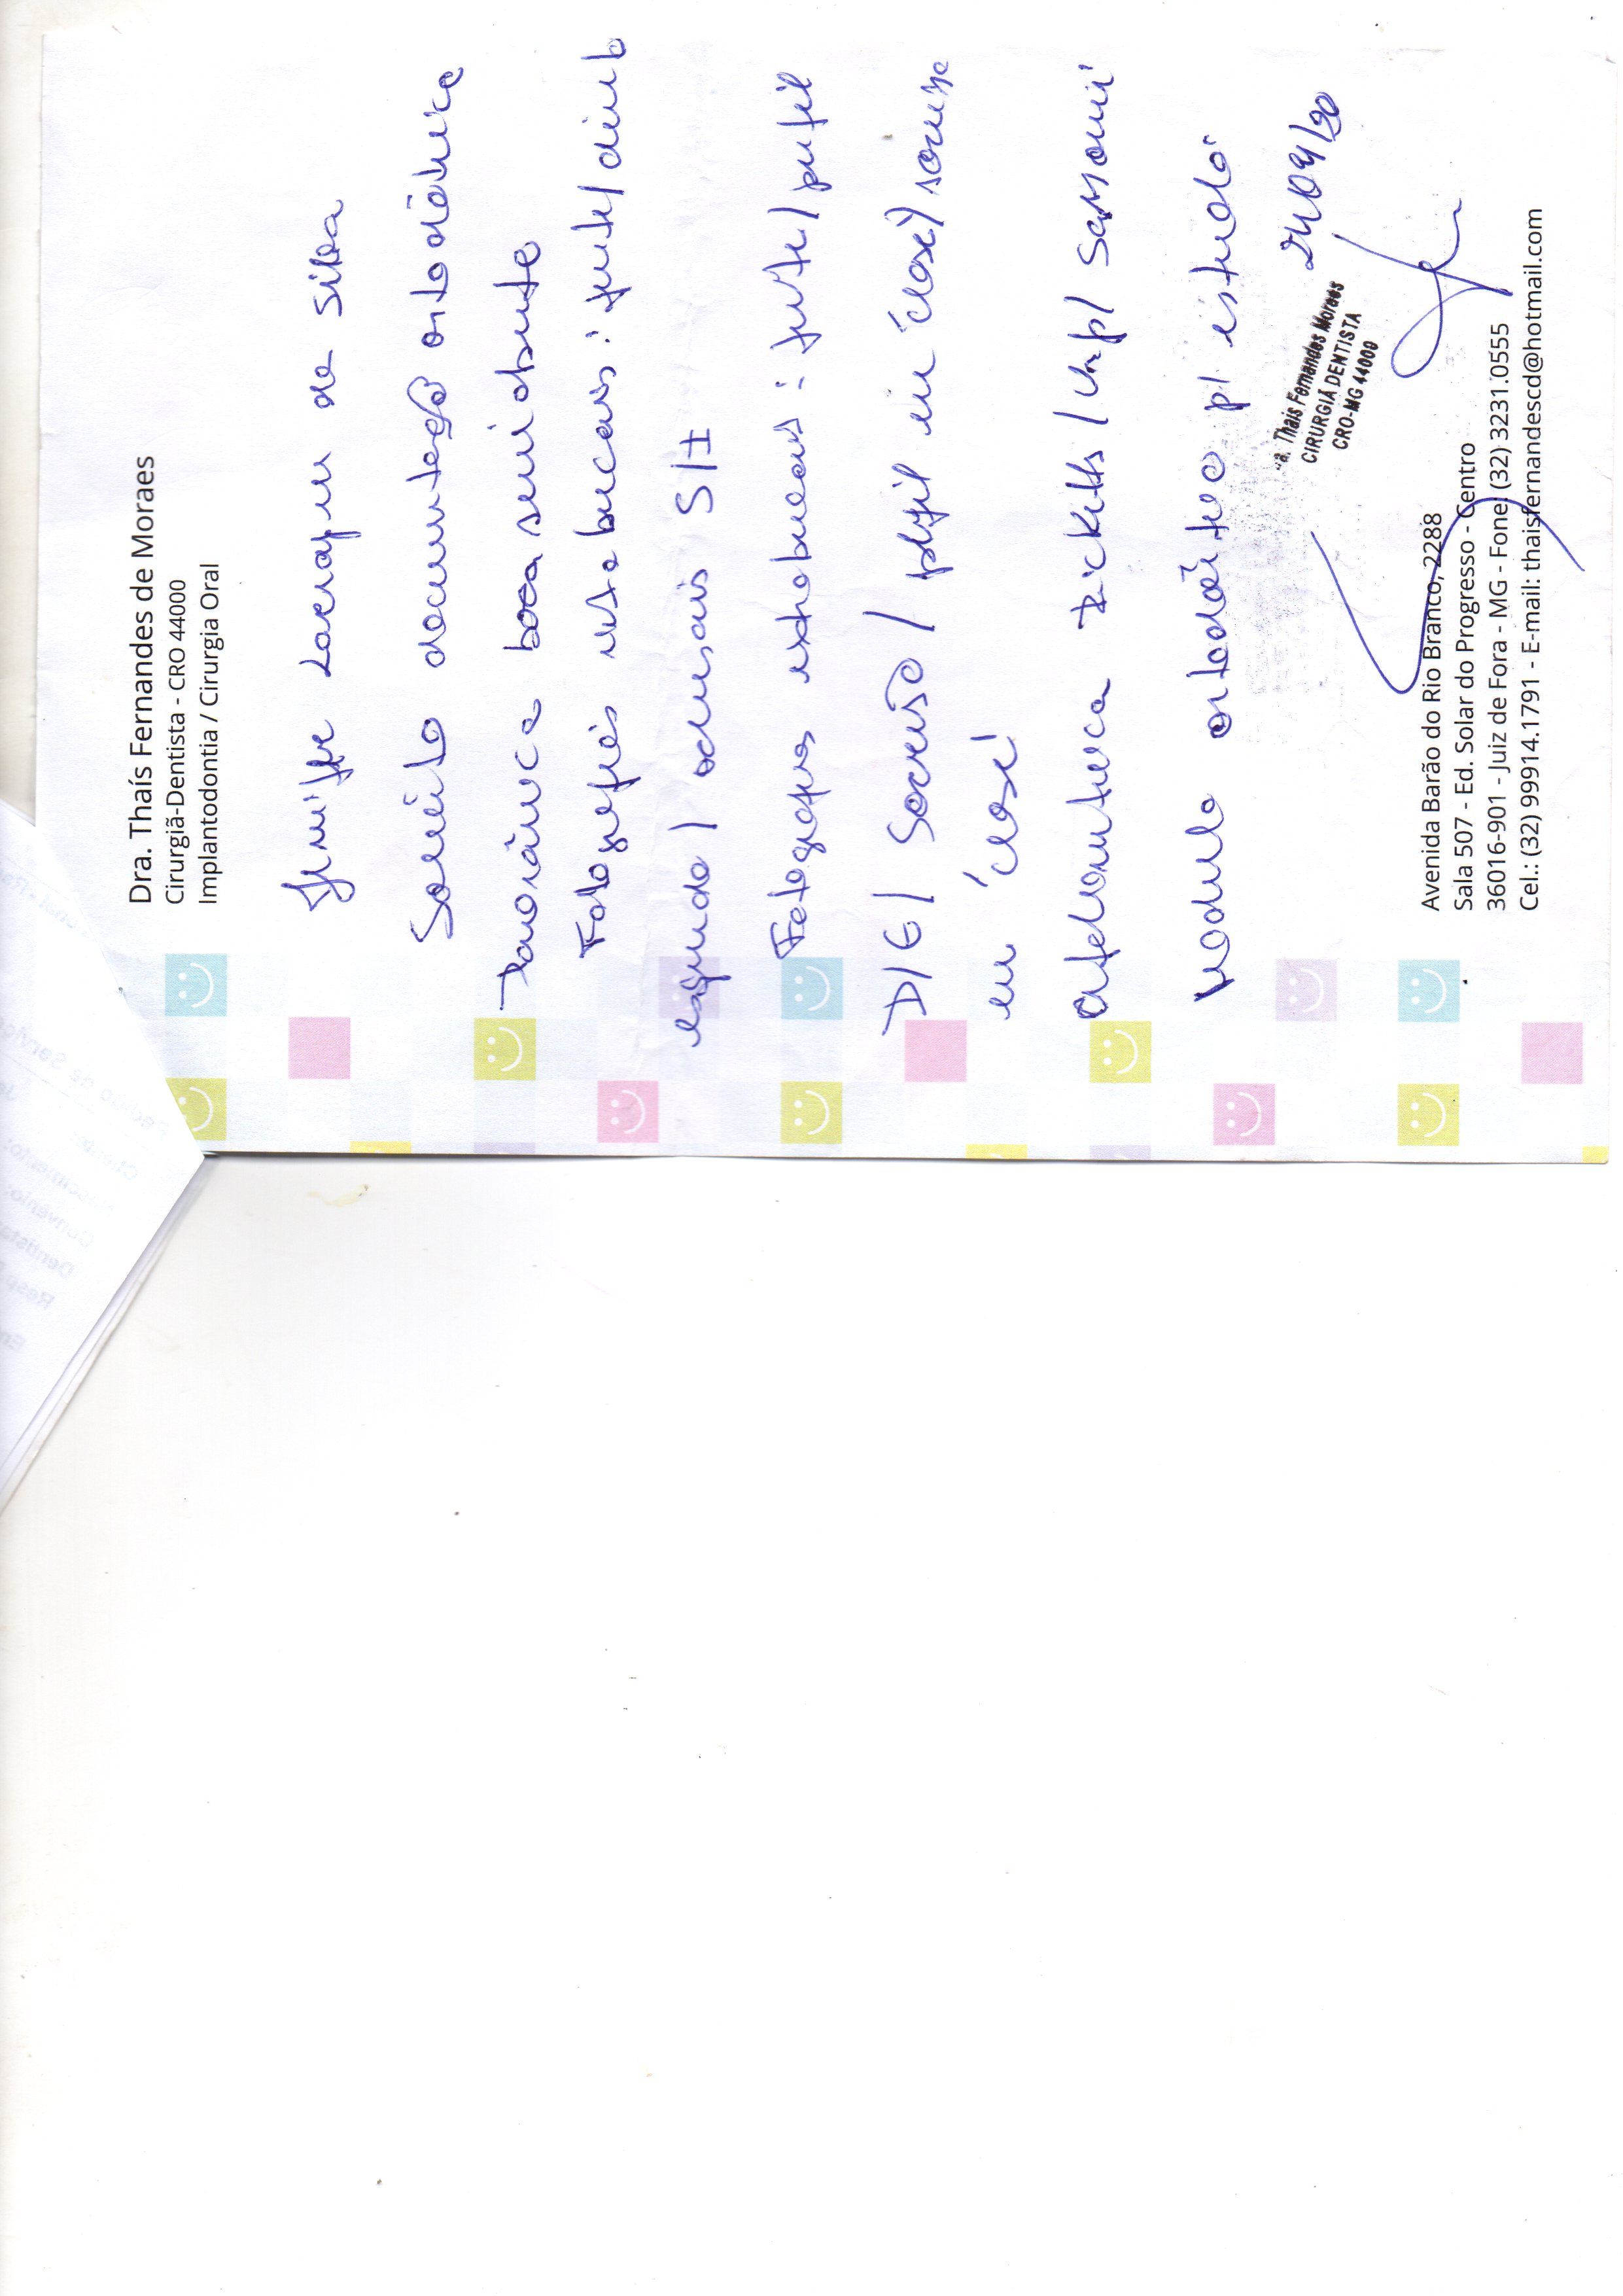 Dra. Thaís Fernandes de Moraes
Cirurgiã-Dentista - CRO 44000
Implantodontia / Cirurgia Oral
de Silva
Solicito documentação ortodôntica
Panorâmica boca semi aberta
Fotografias intrabucais: frente / direita
esquerda / oclusais S/I
Fotografias extrabucais: frente / perfil
D/E / Sorriso / perfil em "close" / sorriso
em "close"
Cefalometrica Ricketts / Usp /
Modelo ortodôntico p/ estudo.
/09/20
a. Thaís Fernandes Moraes
CIRURGIÃ DENTISTA
CRO-MG 44000
Avenida Barão do Rio Branco, 2288
Sala 507 - Ed. Solar do Progresso - Centro
36016-901 - Juiz de Fora - MG - Fone: (32) 3231.0555
Cel.: (32) 99914.1791 - E-mail: thaisfernandescd@hotmail.com